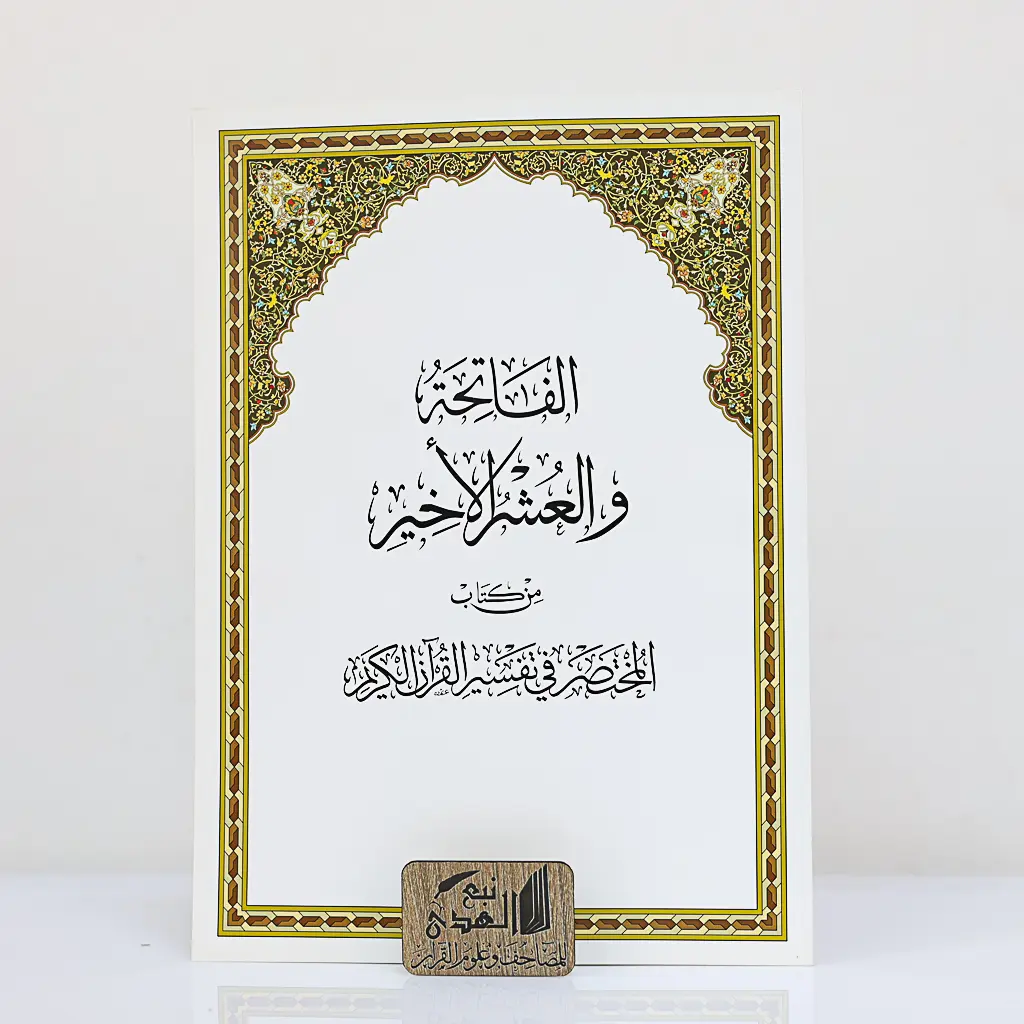 الفَاتِحَةُ
وَالعُشْرُ الأَخِيرِ
مِنْ كِتَابْ
المُخْتَصَرْ فِي تَفْسِيرِ القُرْآنِ الكَرِيمِ
نبع
الهدى
للمصاحف وعلوم القرآن